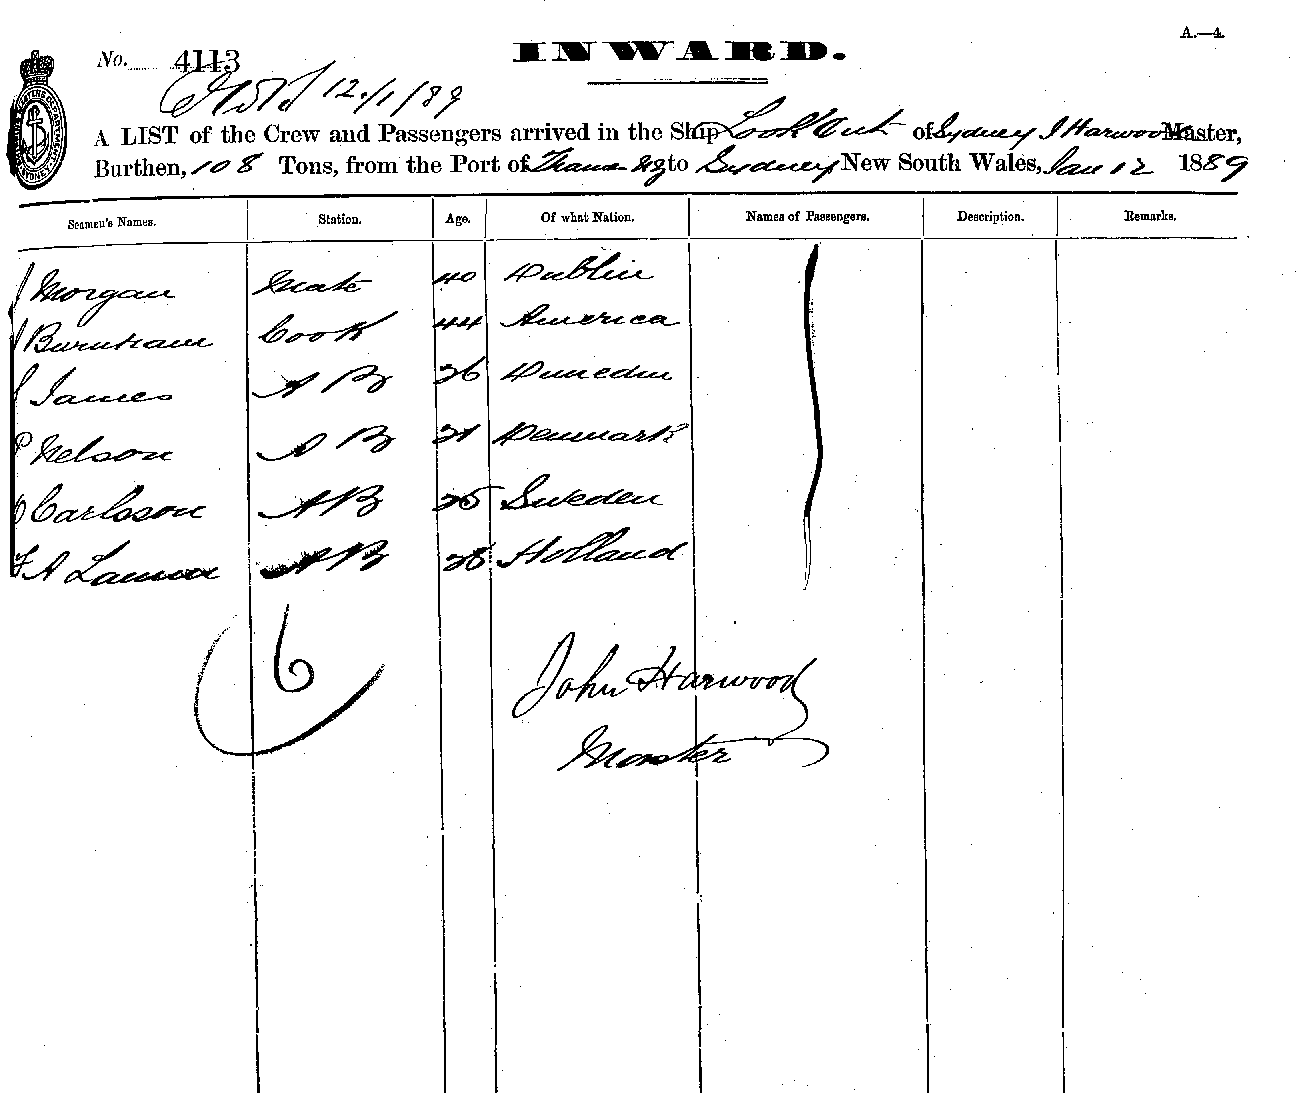 A.—4.
No. 4113
INWARD.
12/1/89
A LIST of the Crew and Passengers arrived in the Ship Look Out of Sydney J Harwood Master,
Burthen, 108 Tons, from the Port of NZ to Sydney New South Wales, Jan 12 1889
Seamen's Names. Station. Age. Of what Nation. Names of Passengers. Description. Remarks.
J Morgan Mate 40 Dublin
Burnham Cook 44 America
J James A B 26 Dunedin
P Nelson A B 21 Denmark
Carlsson A B 25 Sweden
A A B 28 Holland
6
John Harwood
Master